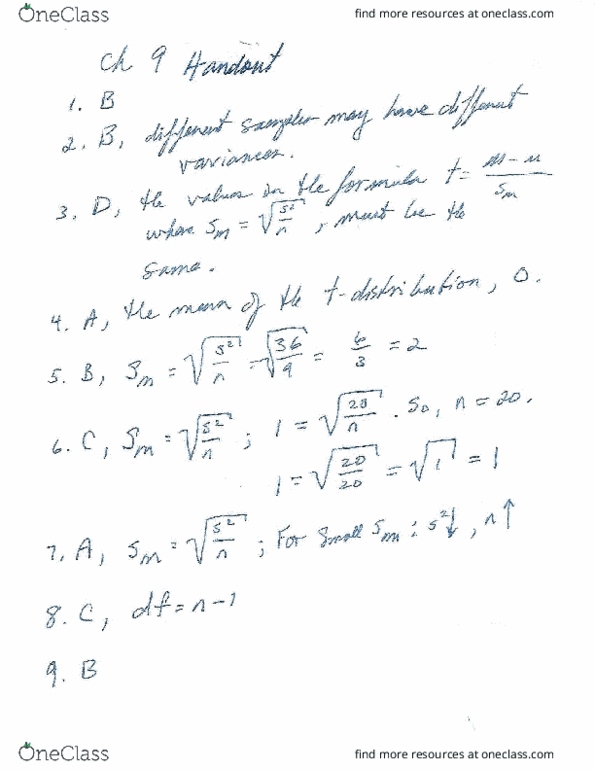 OneClass
find more resources at oneclass.com
Ch 9 Handout
1. B
2. B, different samples may have different
variances.
3. D, the values in the formula t = M - u / Sm
where Sm = √(s²/n), must be the
same.
4. A, the mean of the t-distribution, 0.
5. B, Sm = √(s²/n) = √(36/9) = 6/3 = 2
6. C, Sm = √(s²/n) ; 1 = √(20/n) . So, n = 20.
1 = √(20/20) = √1 = 1
7. A, Sm = √(s²/n) ; For small Sm : s²↓, n↑
8. C, df = n - 1
9. B
OneClass
find more resources at oneclass.com